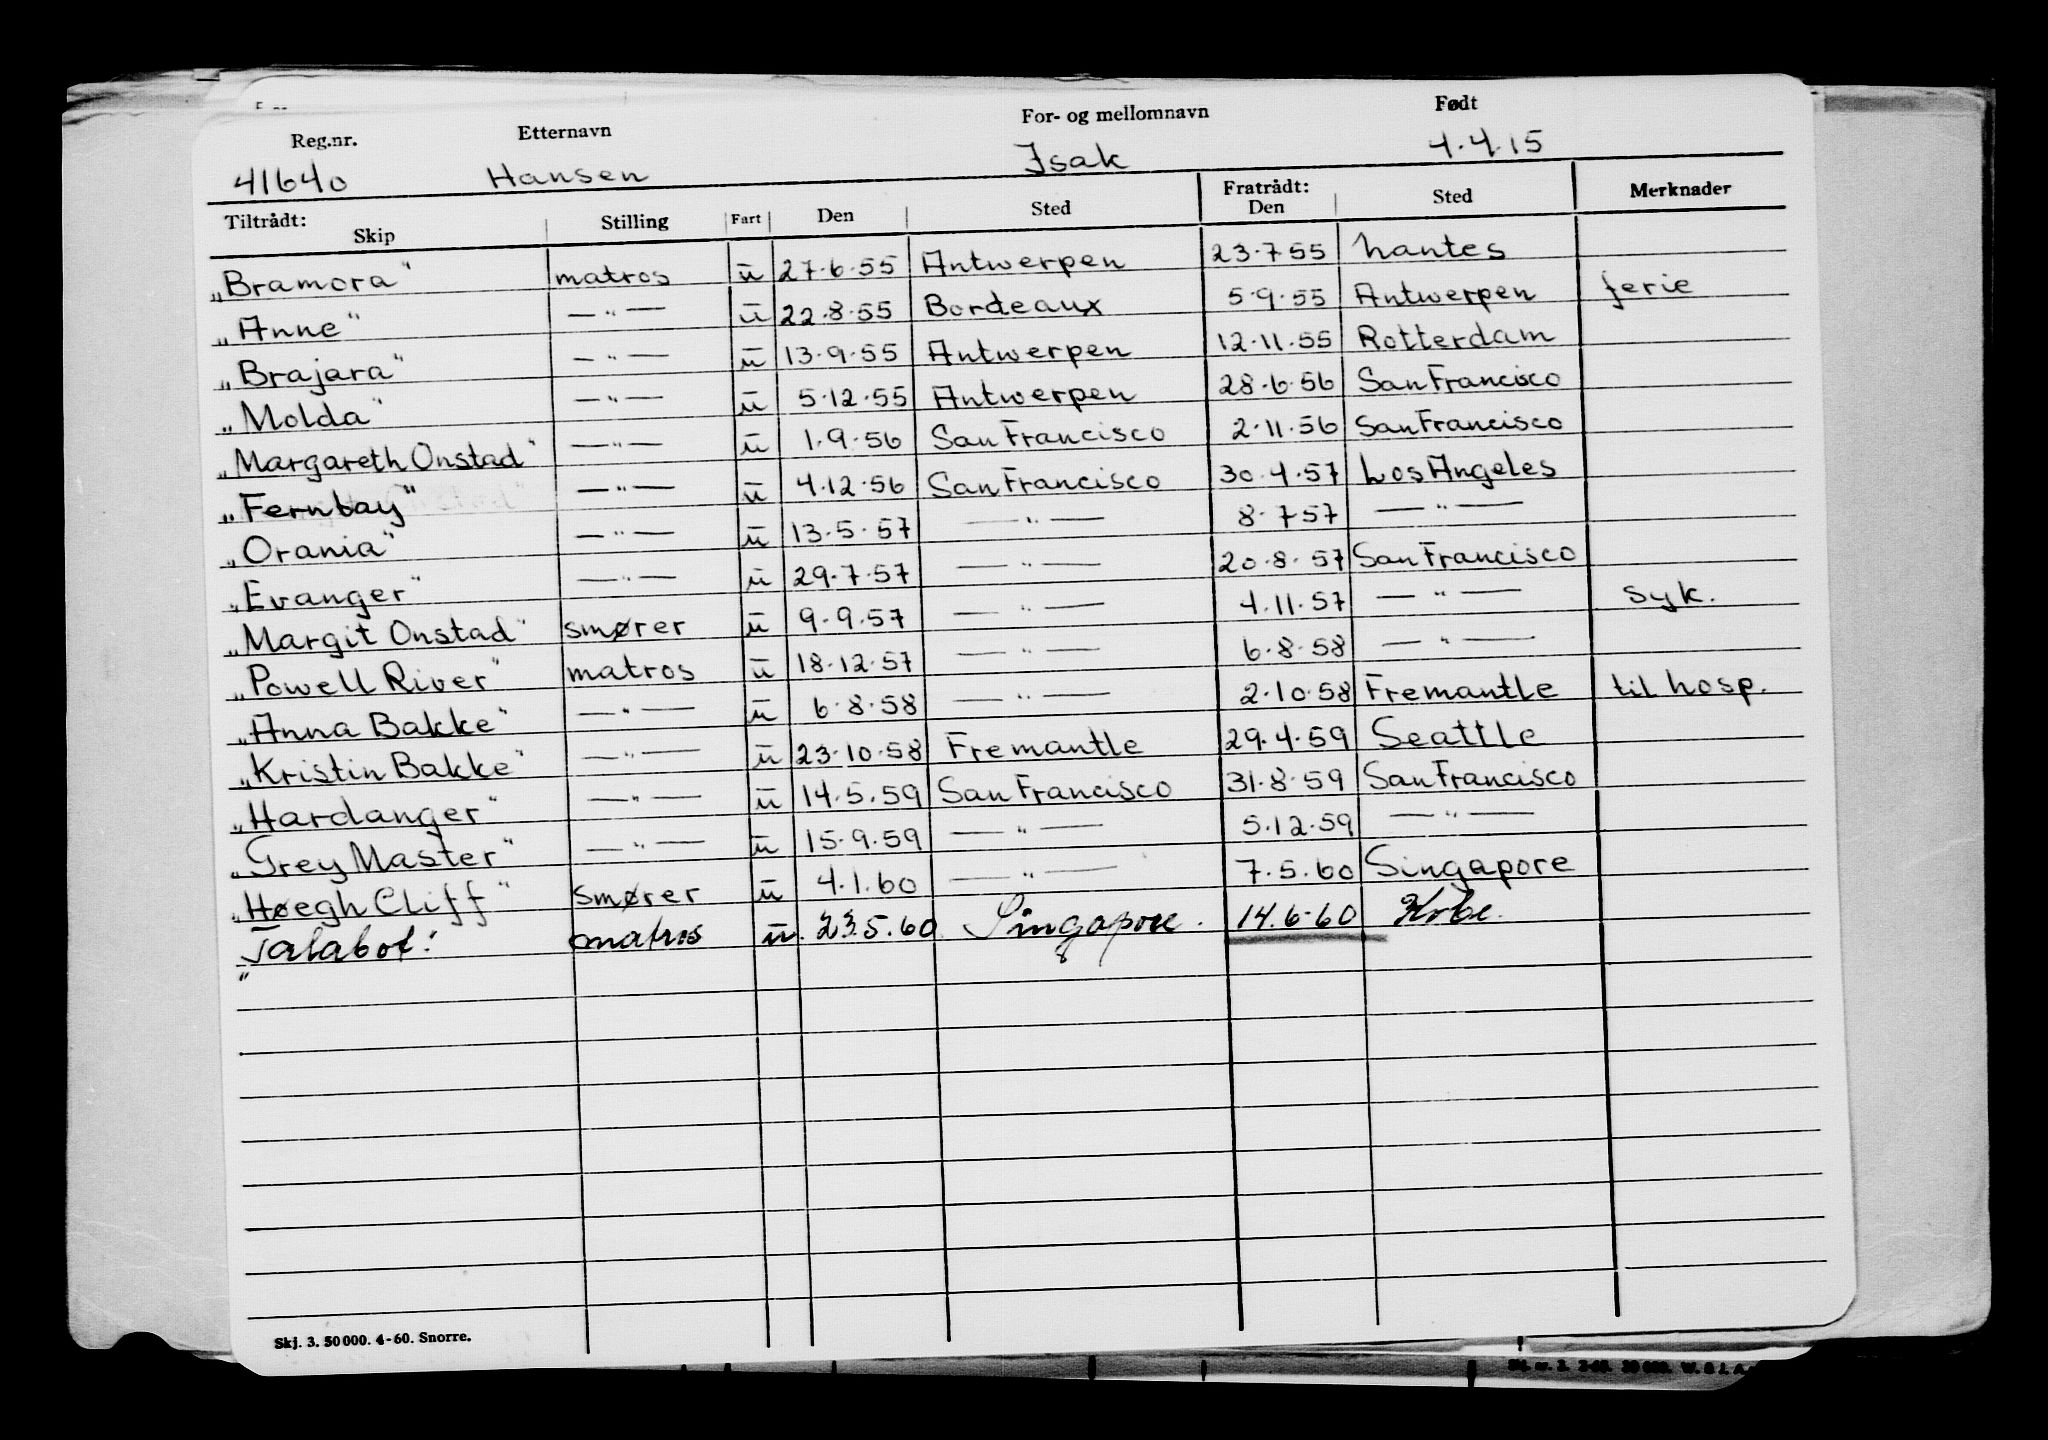 Reg.nr. Etternavn For- og mellomnavn Født
41640 Hansen Isak 4.4.15
Tiltrådt: Skip Stilling Fart Den Sted Fratrådt: Den Sted Merknader
„Bramora" matros u 27.6.55 Antwerpen 23.7.55 Nantes
„Anne" —"— u 22.8.55 Bordeaux 5.9.55 Antwerpen ferie
„Brajara" —"— u 13.9.55 Antwerpen 12.11.55 Rotterdam
„Molda" —"— u 5.12.55 Antwerpen 28.6.56 San Francisco
„Margareth Onstad" —"— u 1.9.56 San Francisco 2.11.56 San Francisco
„Fernbay" —"— u 4.12.56 San Francisco 30.4.57 Los Angeles
„Orania" —"— u 13.5.57 —"— 8.7.57 —"—
„Evanger" —"— u 29.7.57 —"— 20.8.57 San Francisco
„Margit Onstad" smører u 9.9.57 —"— 4.11.57 —"— syk.
„Powell River" matros u 18.12.57 —"— 6.8.58 —"—
„Anna Bakke" —"— u 6.8.58 —"— 2.10.58 Fremantle til hosp.
„Kristin Bakke" —"— u 23.10.58 Fremantle 29.4.59 Seattle
„Hardanger" —"— u 14.5.59 San Francisco 31.8.59 San Francisco
„Grey Master" —"— u 15.9.59 —"— 5.12.59 —"—
„Høegh Cliff" smører u 4.1.60 —"— 7.5.60 Singapore
„Talabot" matros u 23.5.60 Singapore. 14.6.60 Kobe.
Skj. 3. 50 000. 4-60. Snorre.